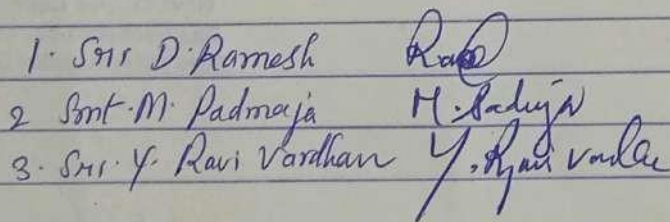 1. Sri D. Ramesh
2 Smt. M. Padmaja M. Padmaja
3. Sri. Y. Ravi Vardhan Y. Ravi Vardhan